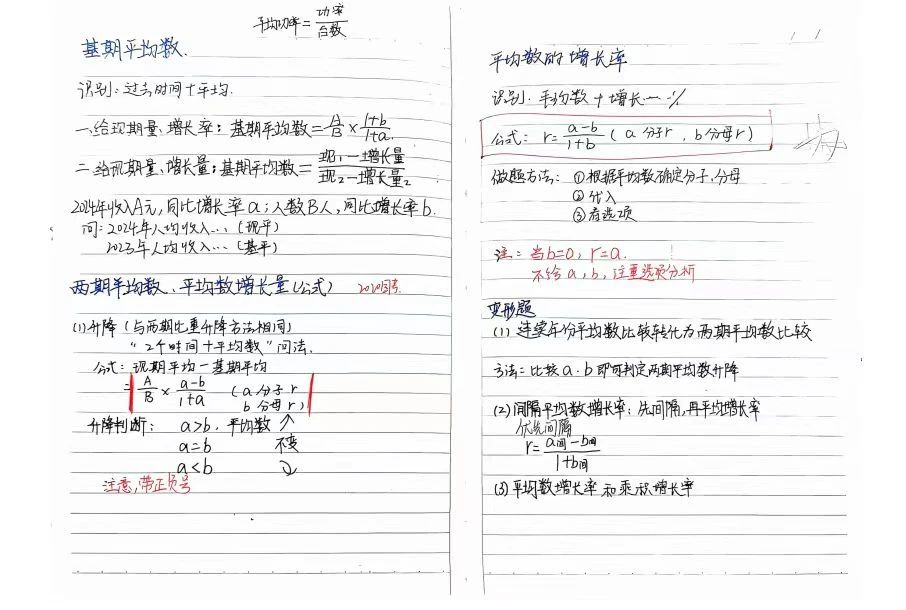 平均功率 = 功率/台数
基期平均数.
识别: 过去时间+平均.
一.给现期量、增长率: 基期平均数 = A/B × 1+b/1+a.
二.给现期量、增长量: 基期平均数 = 现₁-增长量/现₂-增长量₂
2024年收入A元,同比增长率a;人数B人,同比增长率b.
问: 2024年人均收入… (现平)
2023年人均收入… (基平)
两期平均数、平均数增长量(公式) 2020国考
(1)升降 (与两期比重升降方法相同)
“2个时间+平均数”问法.
公式: 现期平均-基期平均
= A/B × a-b/1+a (a 分子 r
b 分母 r)
升降判断: a>b. 平均数 ↗
a=b 不变
a<b ↘
注意,带正负号
平均数的增长率
识别: 平均数+增长…%
公式: r= a-b/1+b (a 分子r , b 分母r)
做题方法: ①根据平均数确定分子,分母
②代入
③看选项
注: 当b=0, r=a.
不给a,b,注重选项分析
变形题
(1) 连续年份平均数比较转化为两期平均数比较
方法: 比较 a.b 即可判定两期平均数升降
(2)间隔平均数增长率: 先间隔,再平均增长率
优先间隔
r= a间-b间/1+b间
(3)平均数增长率和乘积增长率